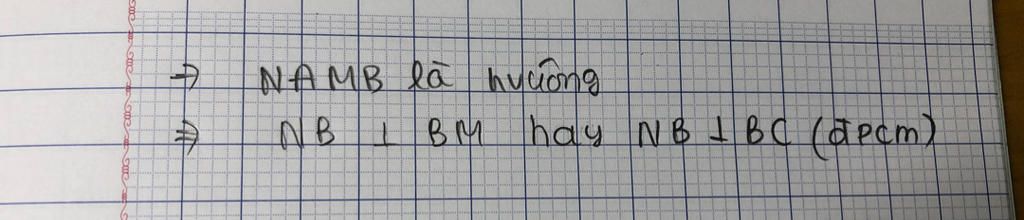 → NAMB là hvuông
⇒ NB ⊥ BM hay NB ⊥ BC (đpcm)